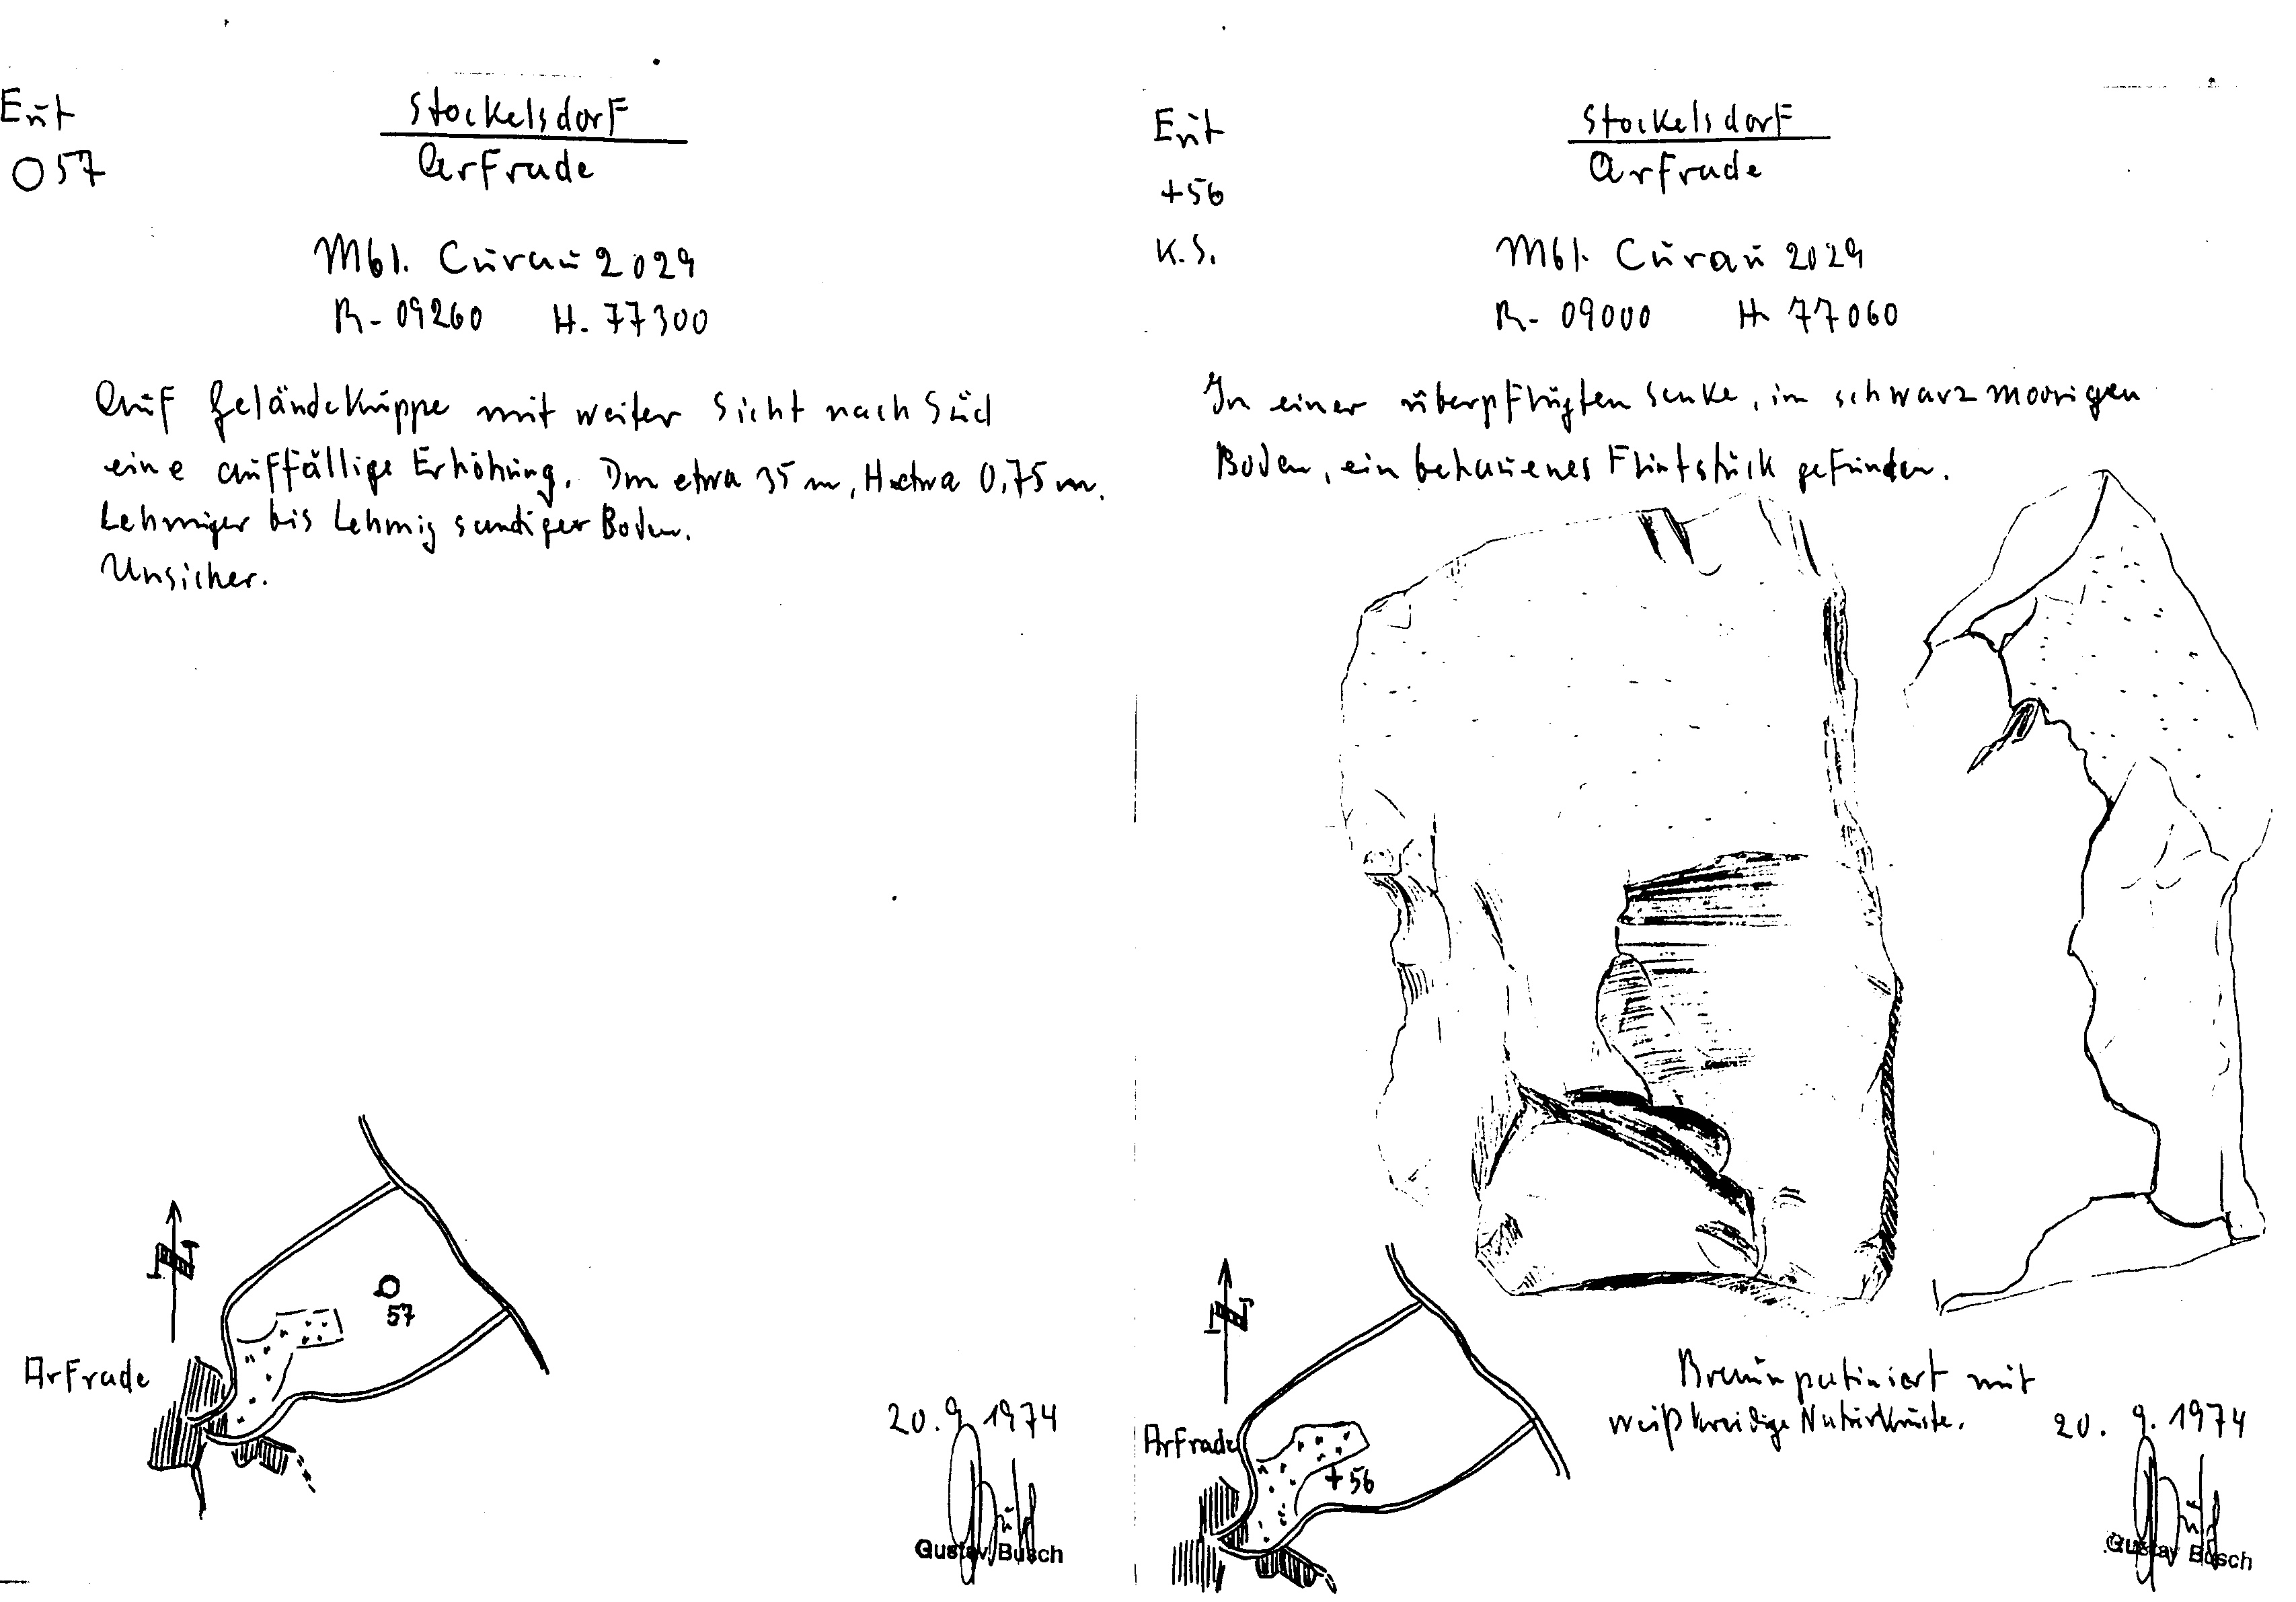 Eut
O 57
Stockelsdorf
Arfrade
Mbl. Curau 2029
R- 09260 H. 77300
Auf Geländekuppe mit weiter Sicht nach Süd
eine auffällige Erhöhung. Dm etwa 35 m, H etwa 0,75 m.
Lehmiger bis Lehmig sandiger Boden.
Unsicher.
57
Arfrade
20. 9. 1974
Gustav Busch
Eut
+56
K.S.
Stockelsdorf
Arfrade
Mbl. Curau 2029
R- 09000 H- 77060
In einer überpflügten Senke, im schwarz moorigen
Boden, ein behauenes Flintstück gefunden.
Braun patiniert mit
weißkreidige Naturkruste.
Arfrade
+56
20. 9. 1974
Gustav Busch